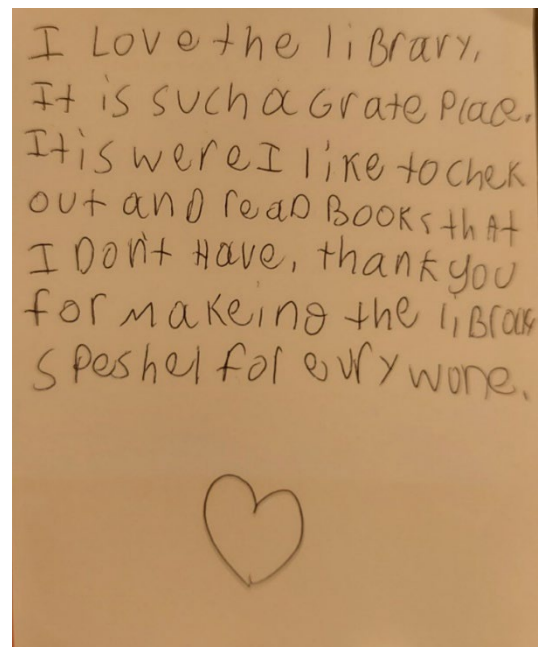 I Love the liBrary,
It is such a Grate Place.
It is were I like to chek
out and reaD BOOKs thAt
I Don't Have, thank you
for makeing the liBrary
speshel for evrywone.